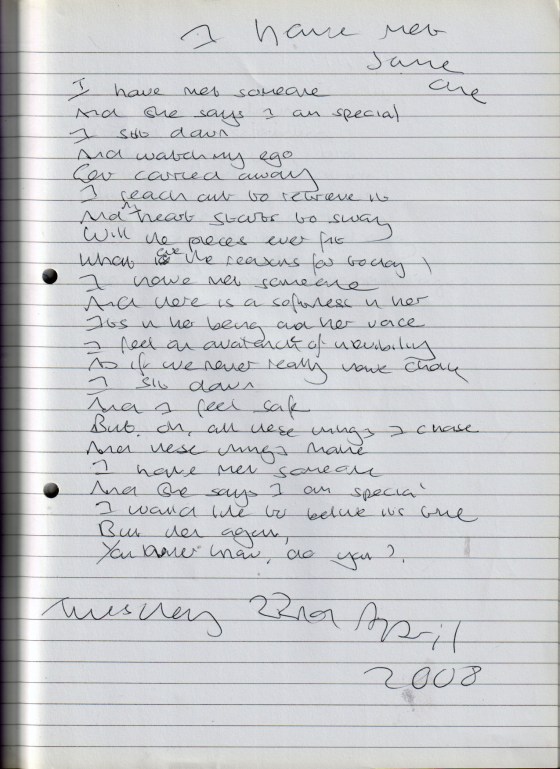 I have met
some
one
I have met someone
And she says I am special
I sit down
And watch my ego
Get carried away
I reach out to retrieve it
And my heart starts to sway
Will the pieces ever fit
What are the reasons for today
I have met someone
And there is a softness in her
Its in her being and her voice
I feel an avalanche of inevitability
As if we never really have choice
I sit down
And I feel safe
But, oh, all these things I chase
And these things
I have met someone
And she says I am special
I would like to believe its true
But then again,
You never know, do you?
Tuesday 22nd April
2008